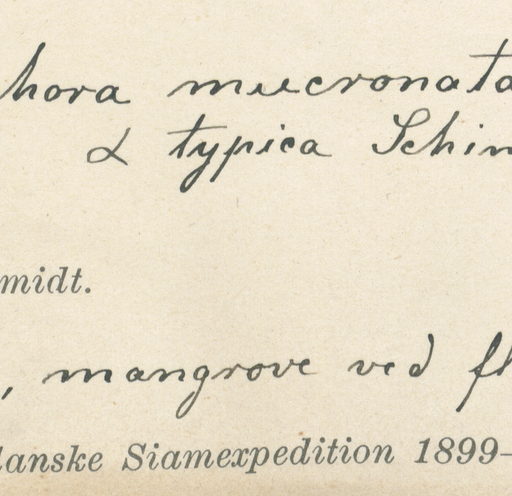 hora mucronata
α typica Schim
midt.
, mangrove ved fl
danske Siamexpedition 1899–